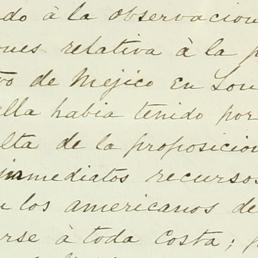 do à la observacion
ones relativa à la p
vo de Mejico en Lon
lla habia tenido por
lta de la proposicion
inmediatos recursos
los americanos de
rse à toda costa; p